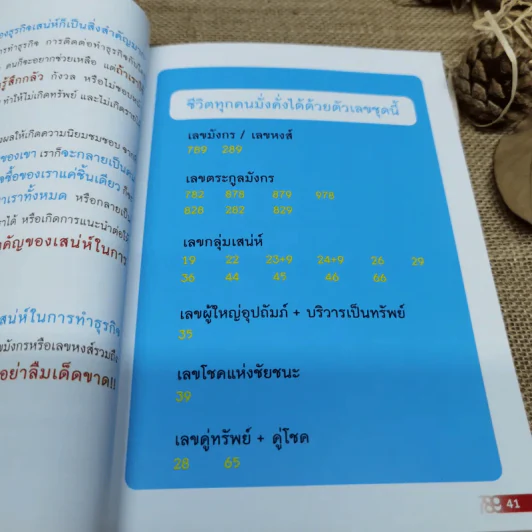 องธุรกิจเสน่ห์ก็เป็นสิ่งสำคัญมาก
การทำธุรกิจ การติดต่อทำธุรกิจกับใคร
คนก็จะอยากช่วยเหลือ แต่ถ้าเราไป
รู้สึกกลัว กังวล หรือไม่ชอบ
ทำให้ไม่เกิดทรัพย์ และไม่เกิด
งผลให้เกิดความนิยมชมชอบ
ของเขา เราก็จะกลายเป็นคน
ซื้อของเราแค่ชิ้นเดียว ก็
เราทั้งหมด หรือกลายเป็น
าได้ หรือเกิดการแนะนำต่อ
คัญของเสน่ห์ในการ
สน่ห์ในการทำธุรกิจ
ขมังกรหรือเลขหงส์รวมถึง
อย่าลืมเด็ดขาด!!
ชีวิตทุกคนมั่งคั่งได้ด้วยตัวเลขชุดนี้
เลขมังกร / เลขหงส์
789 289
เลขตระกูลมังกร
782 878 879 978
828 282 829
เลขกลุ่มเสน่ห์
19 22 23+9 24+9 26 29
36 44 45 46 66
เลขผู้ใหญ่อุปถัมภ์ + บริวารเป็นทรัพย์
35
เลขโชคแห่งชัยชนะ
39
เลขคู่ทรัพย์ + คู่โชค
28 65
789 41